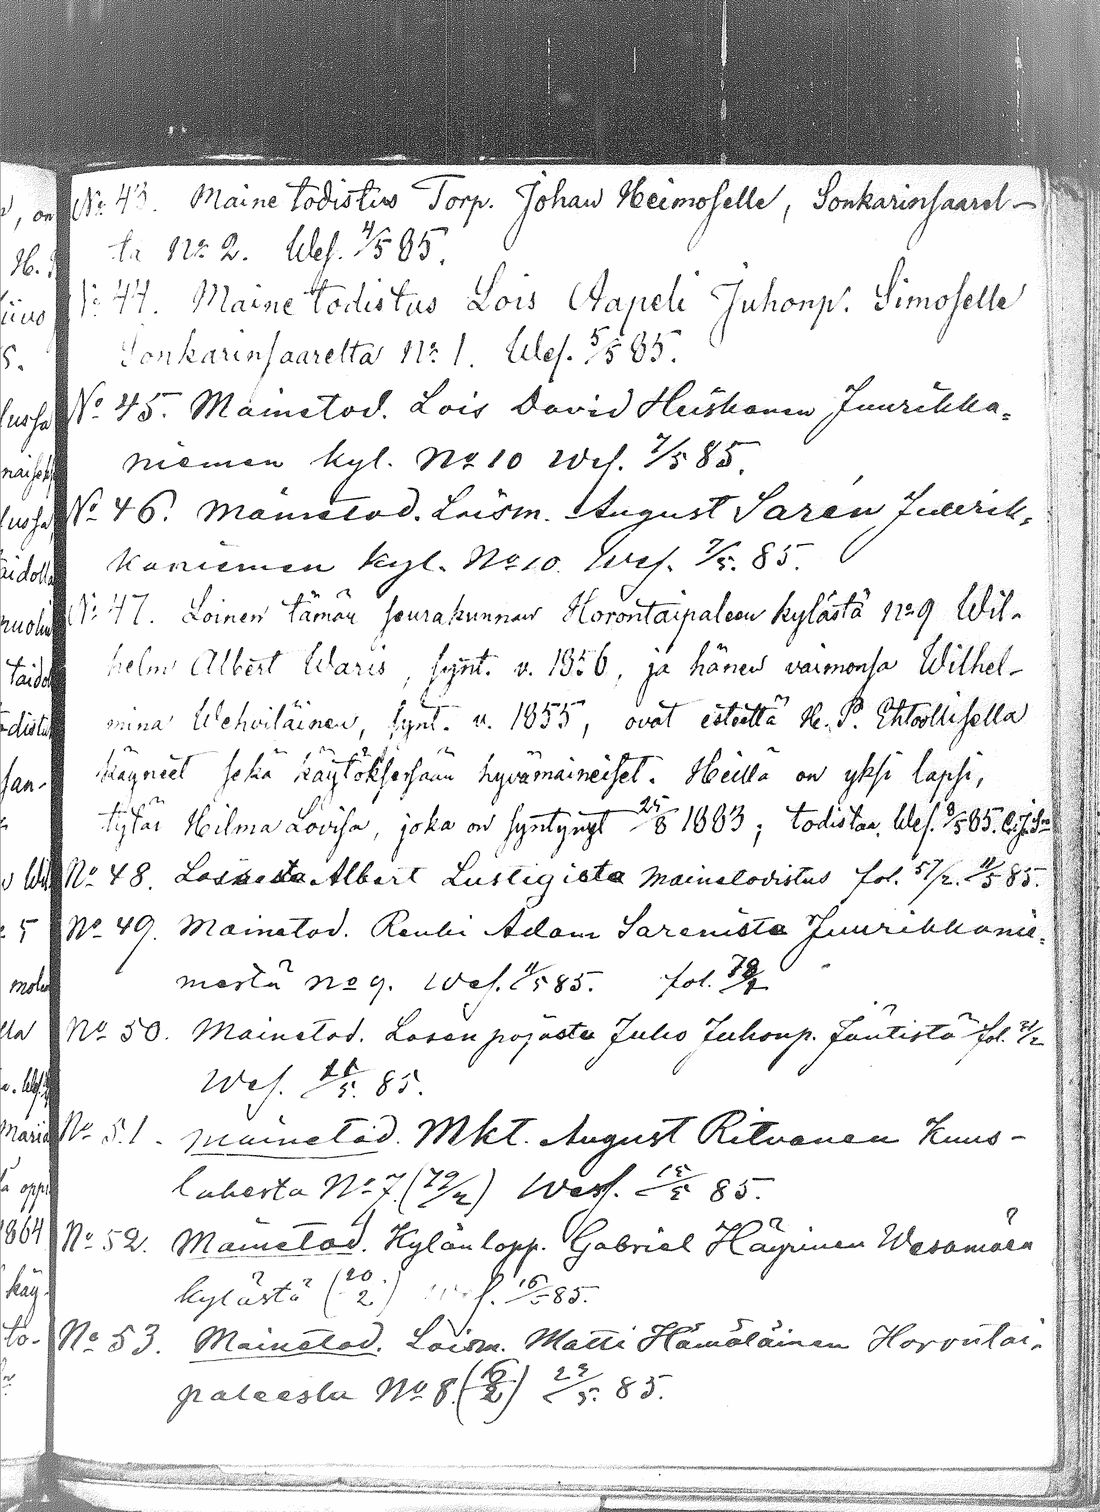 No 43. Maine todistus Torp. Johan Heimoselle, Sonkarinsaarel-
ta No 2. Wes. 4/5 85.
No 44. Maine todistus Lois Aapeli Juhonp. Simoselle
Sonkarinsaarelta No 1. Wes. 5/5 85.
No 45. Mainetod. Lois David Heiskanen Juurikka=
niemen kyl. No 10 Wes. 7/5 85.
No 46. Mainetod. Loism. August Sarén Juurik=
kaniemen kyl. No 10 Wes. 7/5. 85.
No 47. Loinen tämän seurakunnan Horontaipaleen kylästä No 9 Wil-
helm Albert Waris, synt. v. 1856, ja hänen vaimonsa Wilhel-
mina Wehviläinen, synt. v. 1855, ovat esteettä H. P. Ehtoollisella
käyneet sekä käytöksessään hyvämaineiset. Heillä on yksi lapsi,
tytär Hilma Lovisa, joka on syntynyt 25/8 1883; todistaa, Wes. 8/5 85.
No 48. Albert Lustigista mainetodistus fol. 57/2. 11/5 85.
No 49. Mainetod. Renki Adam Sarenista Juurikkanie=
mestä No 9. Wes. 11/5 85. fol.
No 50. Mainetod. Losen pojasta Juho Juhonp. Jäntistä fol.
Wes. 11/5. 85.
No 51. Mainetod. Mkt. August Ritvanen Kuus-
lahesta No 7. (72/2) Wes. 15/5 85.
No 52. Mainetod. Kylänlopp. Gabriel Häyrinen Wesamäen
kylästä (20/2) Wes. 16/5 85.
No 53. Mainetod. Loism. Matti Hämäläinen Horontai-
paleesta No 8. (6/2) 23/5. 85.